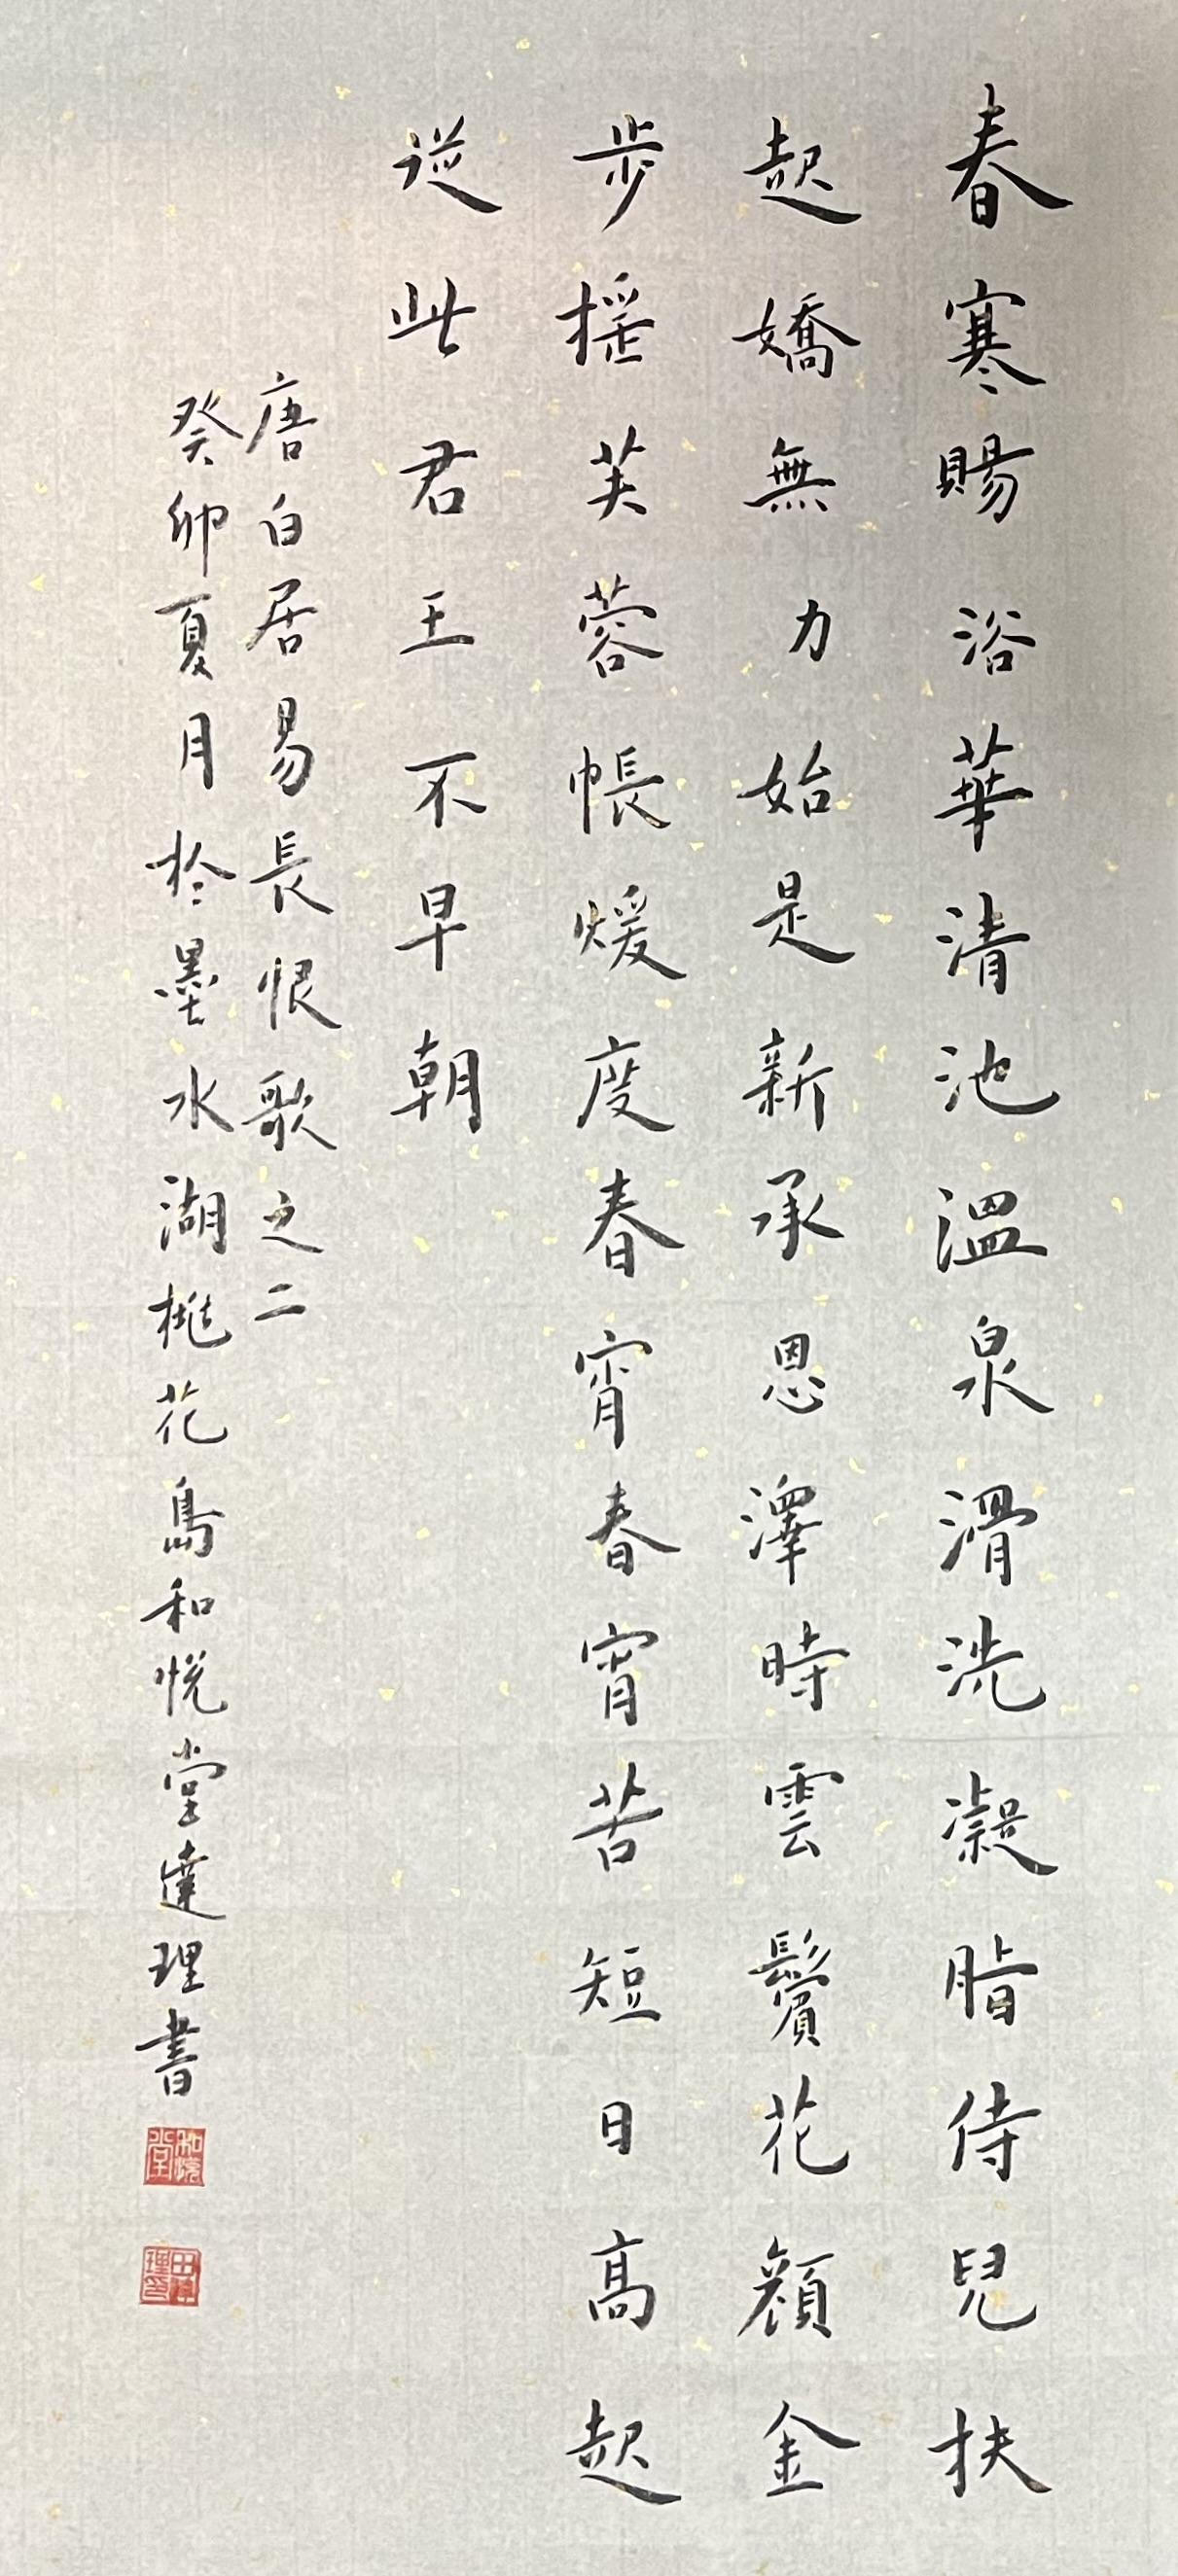 春寒賜浴華清池溫泉滑洗凝脂侍兒扶
起嬌無力始是新承恩澤時雲鬢花顏金
步摇芙蓉帳煖度春宵春宵苦短日高起
從此君王不早朝
唐白居易長恨歌之二
癸卯夏月於墨水湖桃花島和悦堂達理書
和悦堂